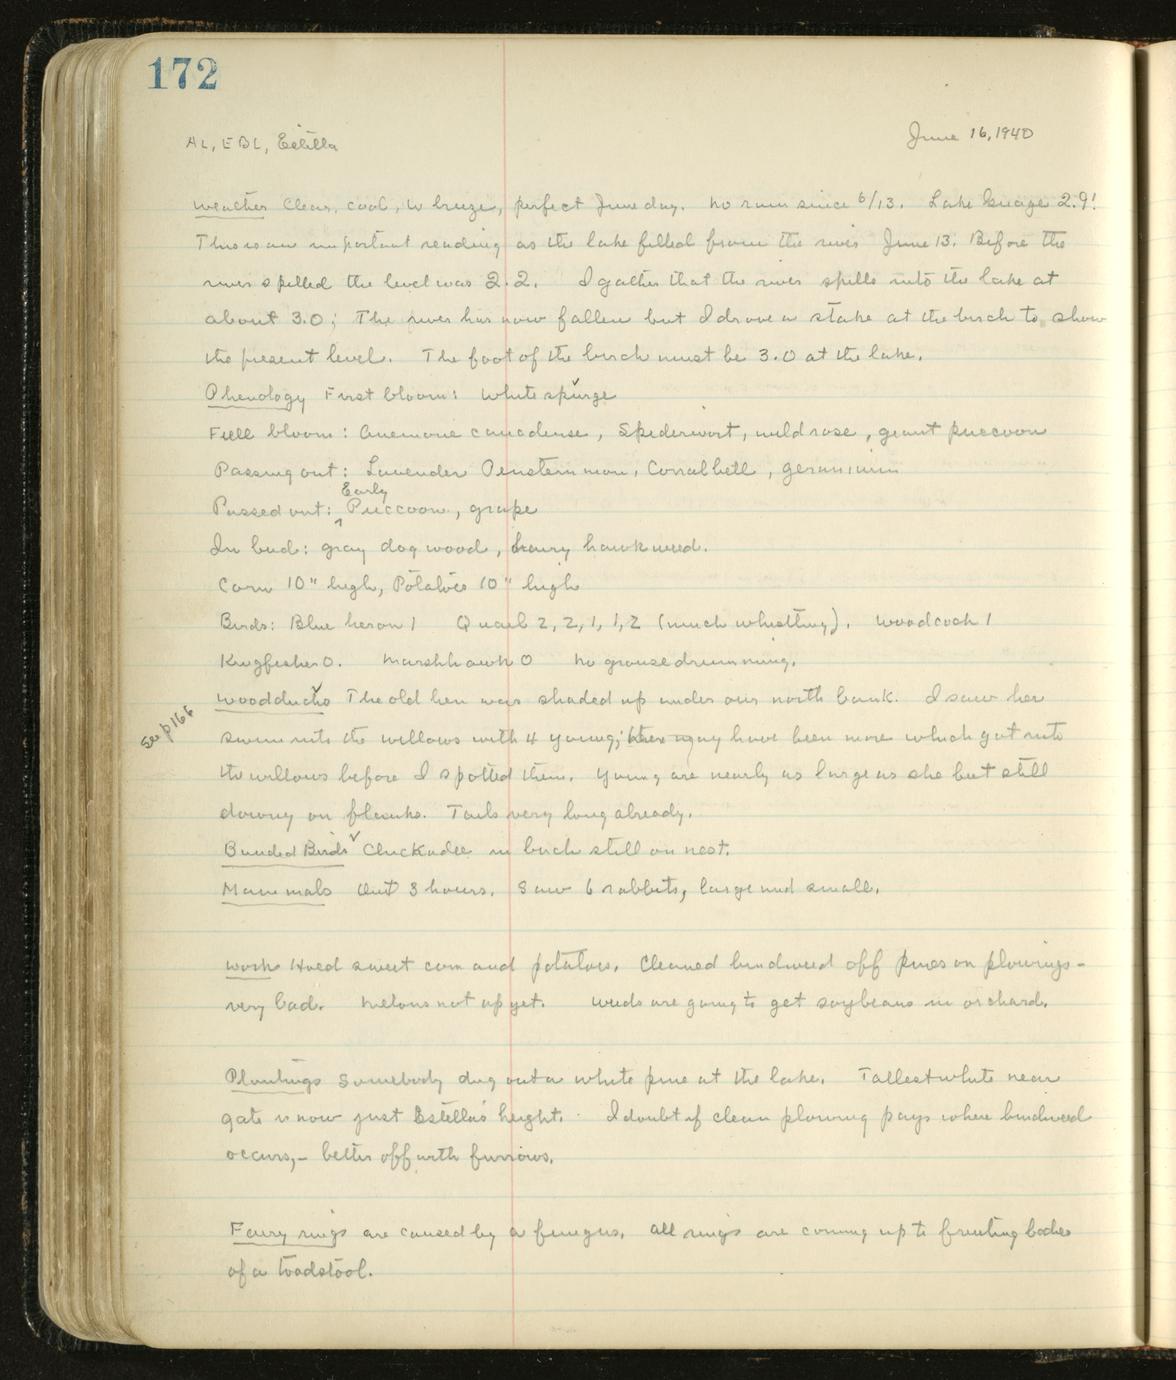 172
AL, EBL, Estella
June 16, 1940
Weather Clear, cool, W breeze, perfect June day. No rain since 6/13. Lake Guage 2.9!
This is an important reading as the lake filled from the river June 13. Before the
river spilled the level was 2.2. I gather that the river spills into the lake at
about 3.0; The river has now fallen but I drove a stake at the birch to show
the present level. The foot of the birch must be 3.0 at the lake.
Phenology First bloom: White spurge
Full bloom: Anemone canadense, Spiderwort, wild rose, giant puccoon
Passing out: Lavender Penstemmon, Corralbell, geranium
Early
Passed out: ^ Puccoon, grape
In bud: gray dogwood, hairy hawkweed.
Corn 10" high, Potatoes 10" high
Birds: Blue heron 1 Quail 2, 2, 1, 1, 2 (much whistling). Woodcock 1
Kingfisher 0. Marshhawk 0 No grouse drumming.
Woodducks The old hen was shaded up under our north bank. I saw her
See p166
swim into the willows with 4 young; there may have been more which got into
the willows before I spotted them. Young are nearly as large as she but still
downy on flanks. Tails very long already.
Banded Birds Chickadee in birch still on nest.
Mammals Out 3 hours. Saw 6 rabbits, large and small.
Work Hoed sweet corn and potatoes. Cleaned bindweed off pines on plowings -
very bad. Melons not up yet. Weeds are going to get soybeans in orchard.
Plantings Somebody dug out a white pine at the lake. Tallest white near
gate is now just Estella's height. I doubt if clean plowing pays where bindweed
occurs, - better off with furrows.
Fairy rings are caused by a fungus. All rings are coming up to fruiting bodies
of a toadstool.